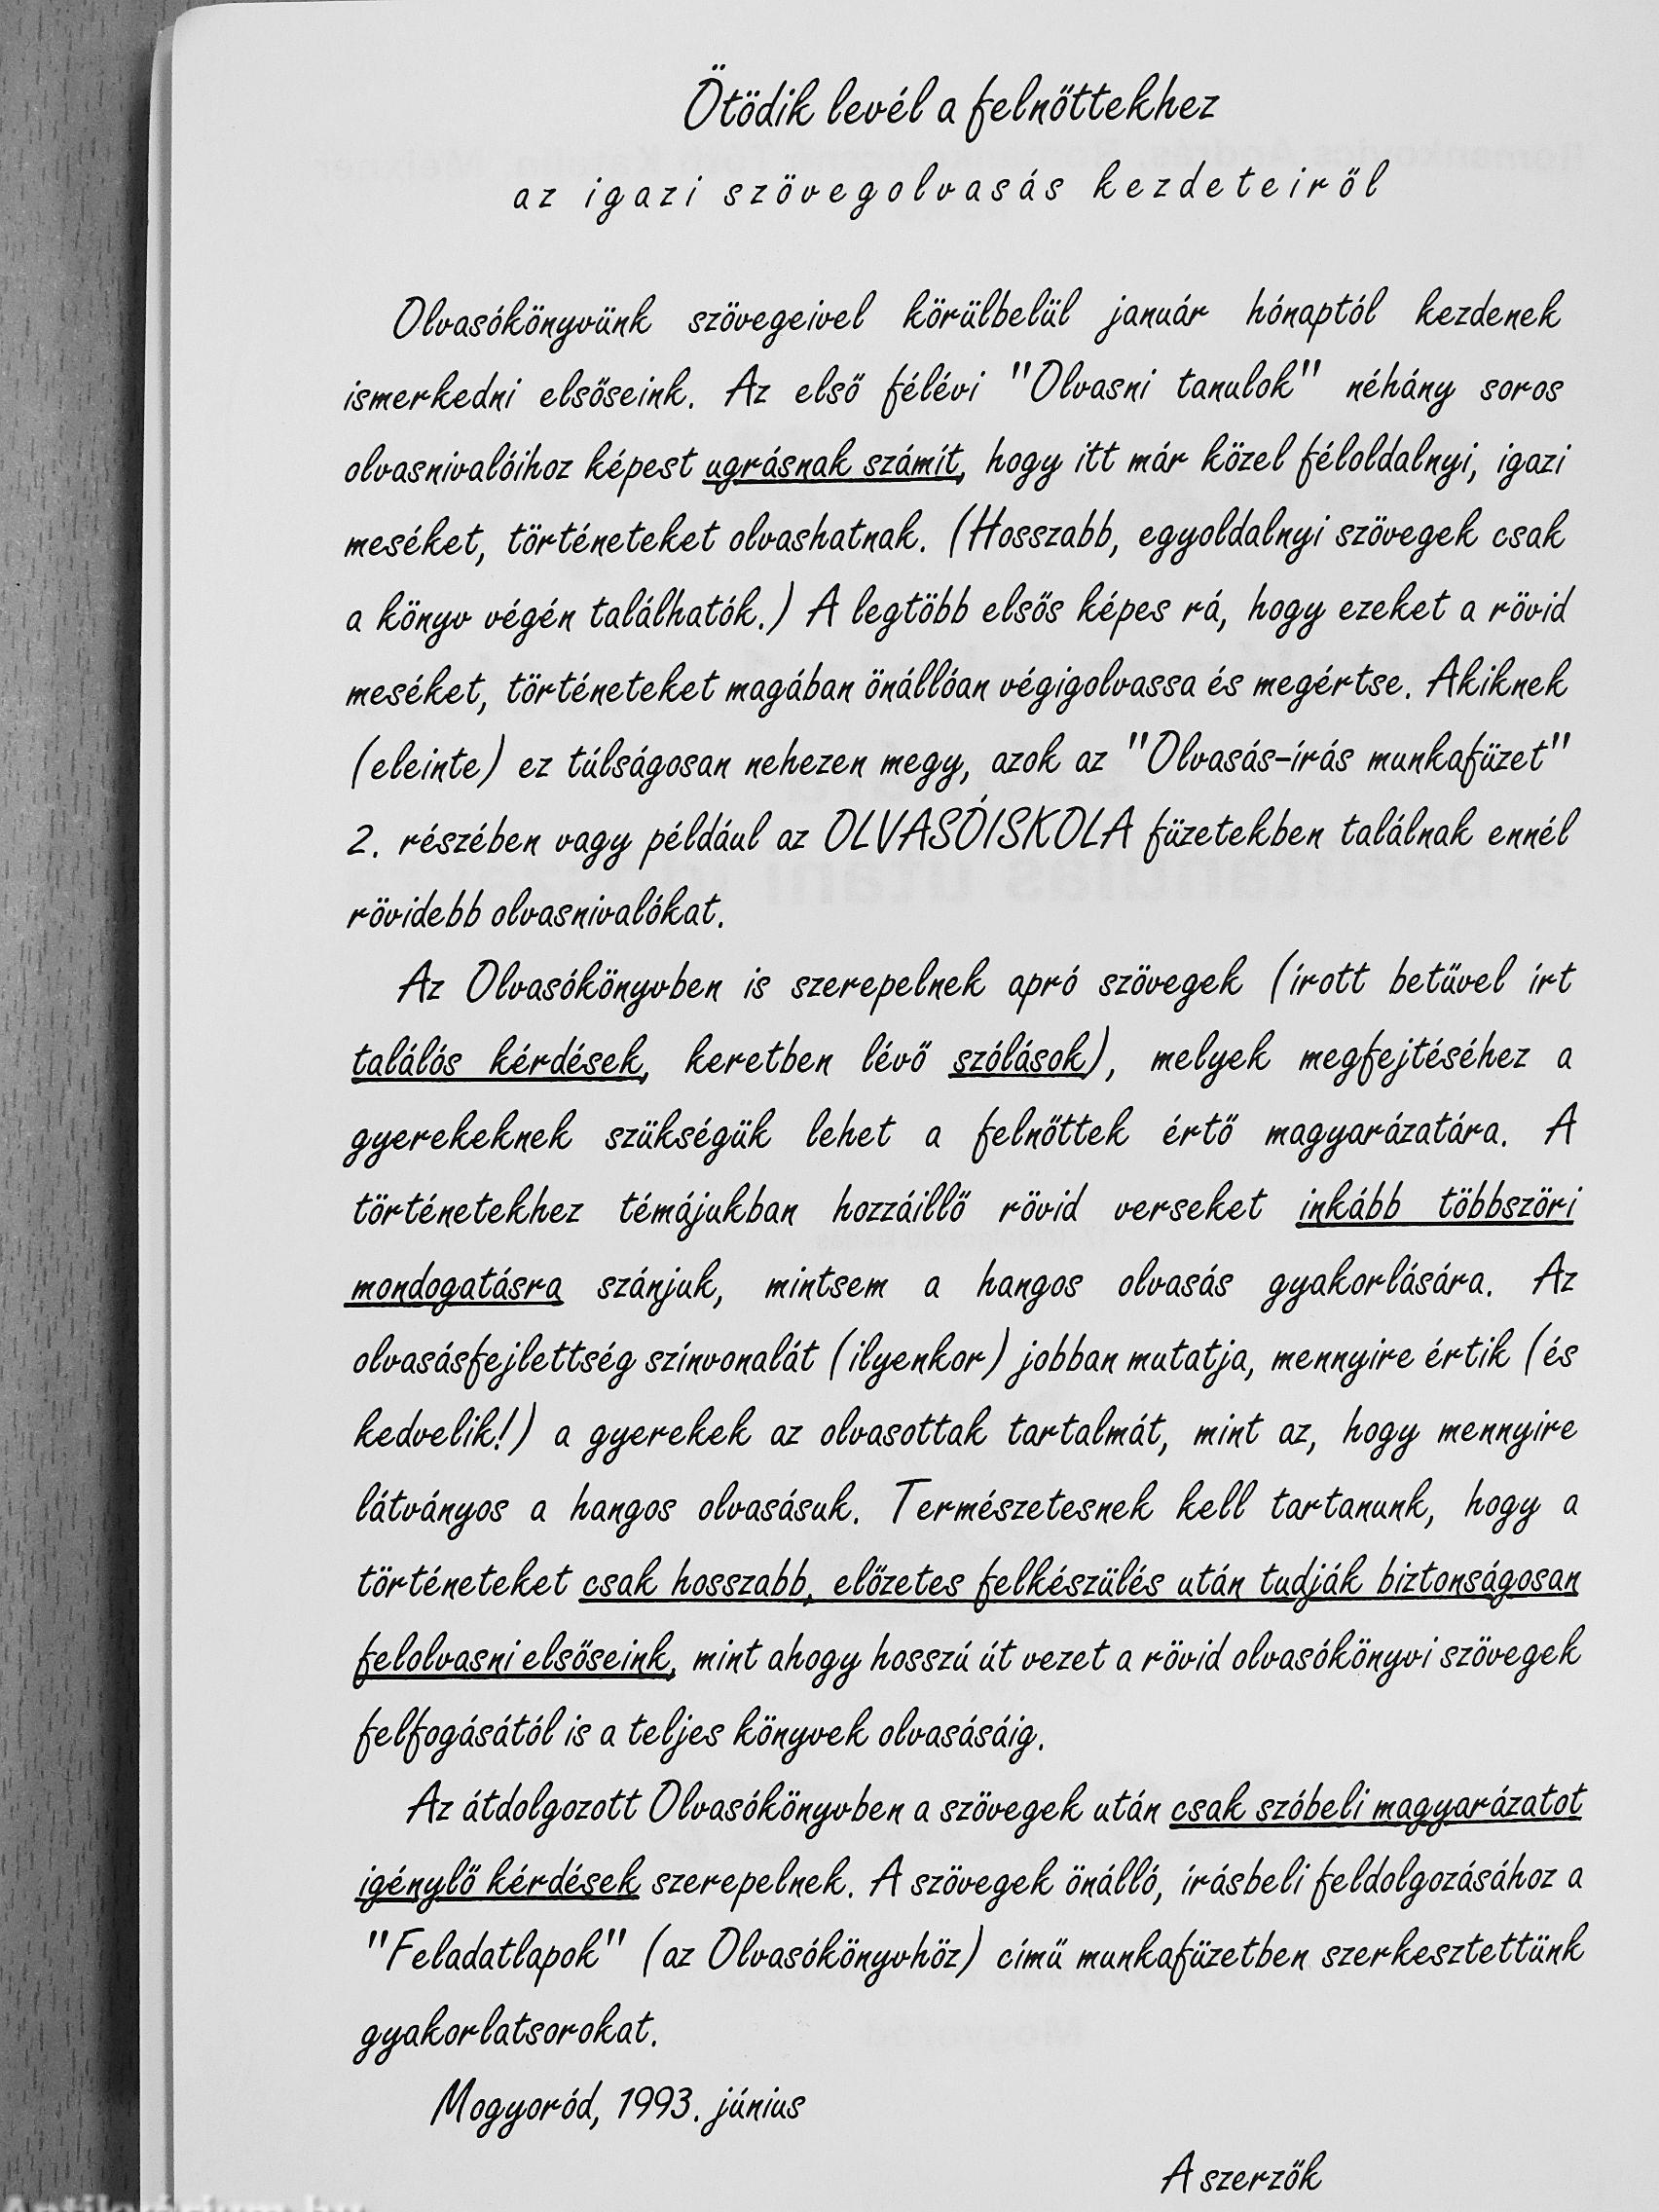 Ötödik levél a felnőttekhez
az igazi szövegolvasás kezdeteiről
Olvasókönyvünk szövegeivel körülbelül január hónaptól kezdenek
ismerkedni elsőseink. Az első félévi "Olvasni tanulok" néhány soros
olvasnivalóihoz képest ugrásnak számít, hogy itt már közel féloldalnyi, igazi
meséket, történeteket olvashatnak. (Hosszabb, egyoldalnyi szövegek csak
a könyv végén találhatók.) A legtöbb elsős képes rá, hogy ezeket a rövid
meséket, történeteket magában önállóan végigolvassa és megértse. Akiknek
(eleinte) ez túlságosan nehezen megy, azok az "Olvasás-írás munkafüzet"
2. részében vagy például az OLVASÓISKOLA füzetekben találnak ennél
rövidebb olvasnivalókat.
Az Olvasókönyvben is szerepelnek apró szövegek (írott betűvel írt
találós kérdések, keretben lévő szólások), melyek megfejtéséhez a
gyerekeknek szükségük lehet a felnőttek értő magyarázatára. A
történetekhez témájukban hozzáillő rövid verseket inkább többszöri
mondogatásra szánjuk, mintsem a hangos olvasás gyakorlására. Az
olvasásfejlettség színvonalát (ilyenkor) jobban mutatja, mennyire értik (és
kedvelik!) a gyerekek az olvasottak tartalmát, mint az, hogy mennyire
látványos a hangos olvasásuk. Természetesnek kell tartanunk, hogy a
történeteket csak hosszabb, előzetes felkészülés után tudják biztonságosan
felolvasni elsőseink, mint ahogy hosszú út vezet a rövid olvasókönyvi szövegek
felfogásától is a teljes könyvek olvasásáig.
Az átdolgozott Olvasókönyvben a szövegek után csak szóbeli magyarázatot
igénylő kérdések szerepelnek. A szövegek önálló, írásbeli feldolgozásához a
"Feladatlapok" (az Olvasókönyvhöz) című munkafüzetben szerkesztettünk
gyakorlatsorokat.
Mogyoród, 1993. június
A szerzők